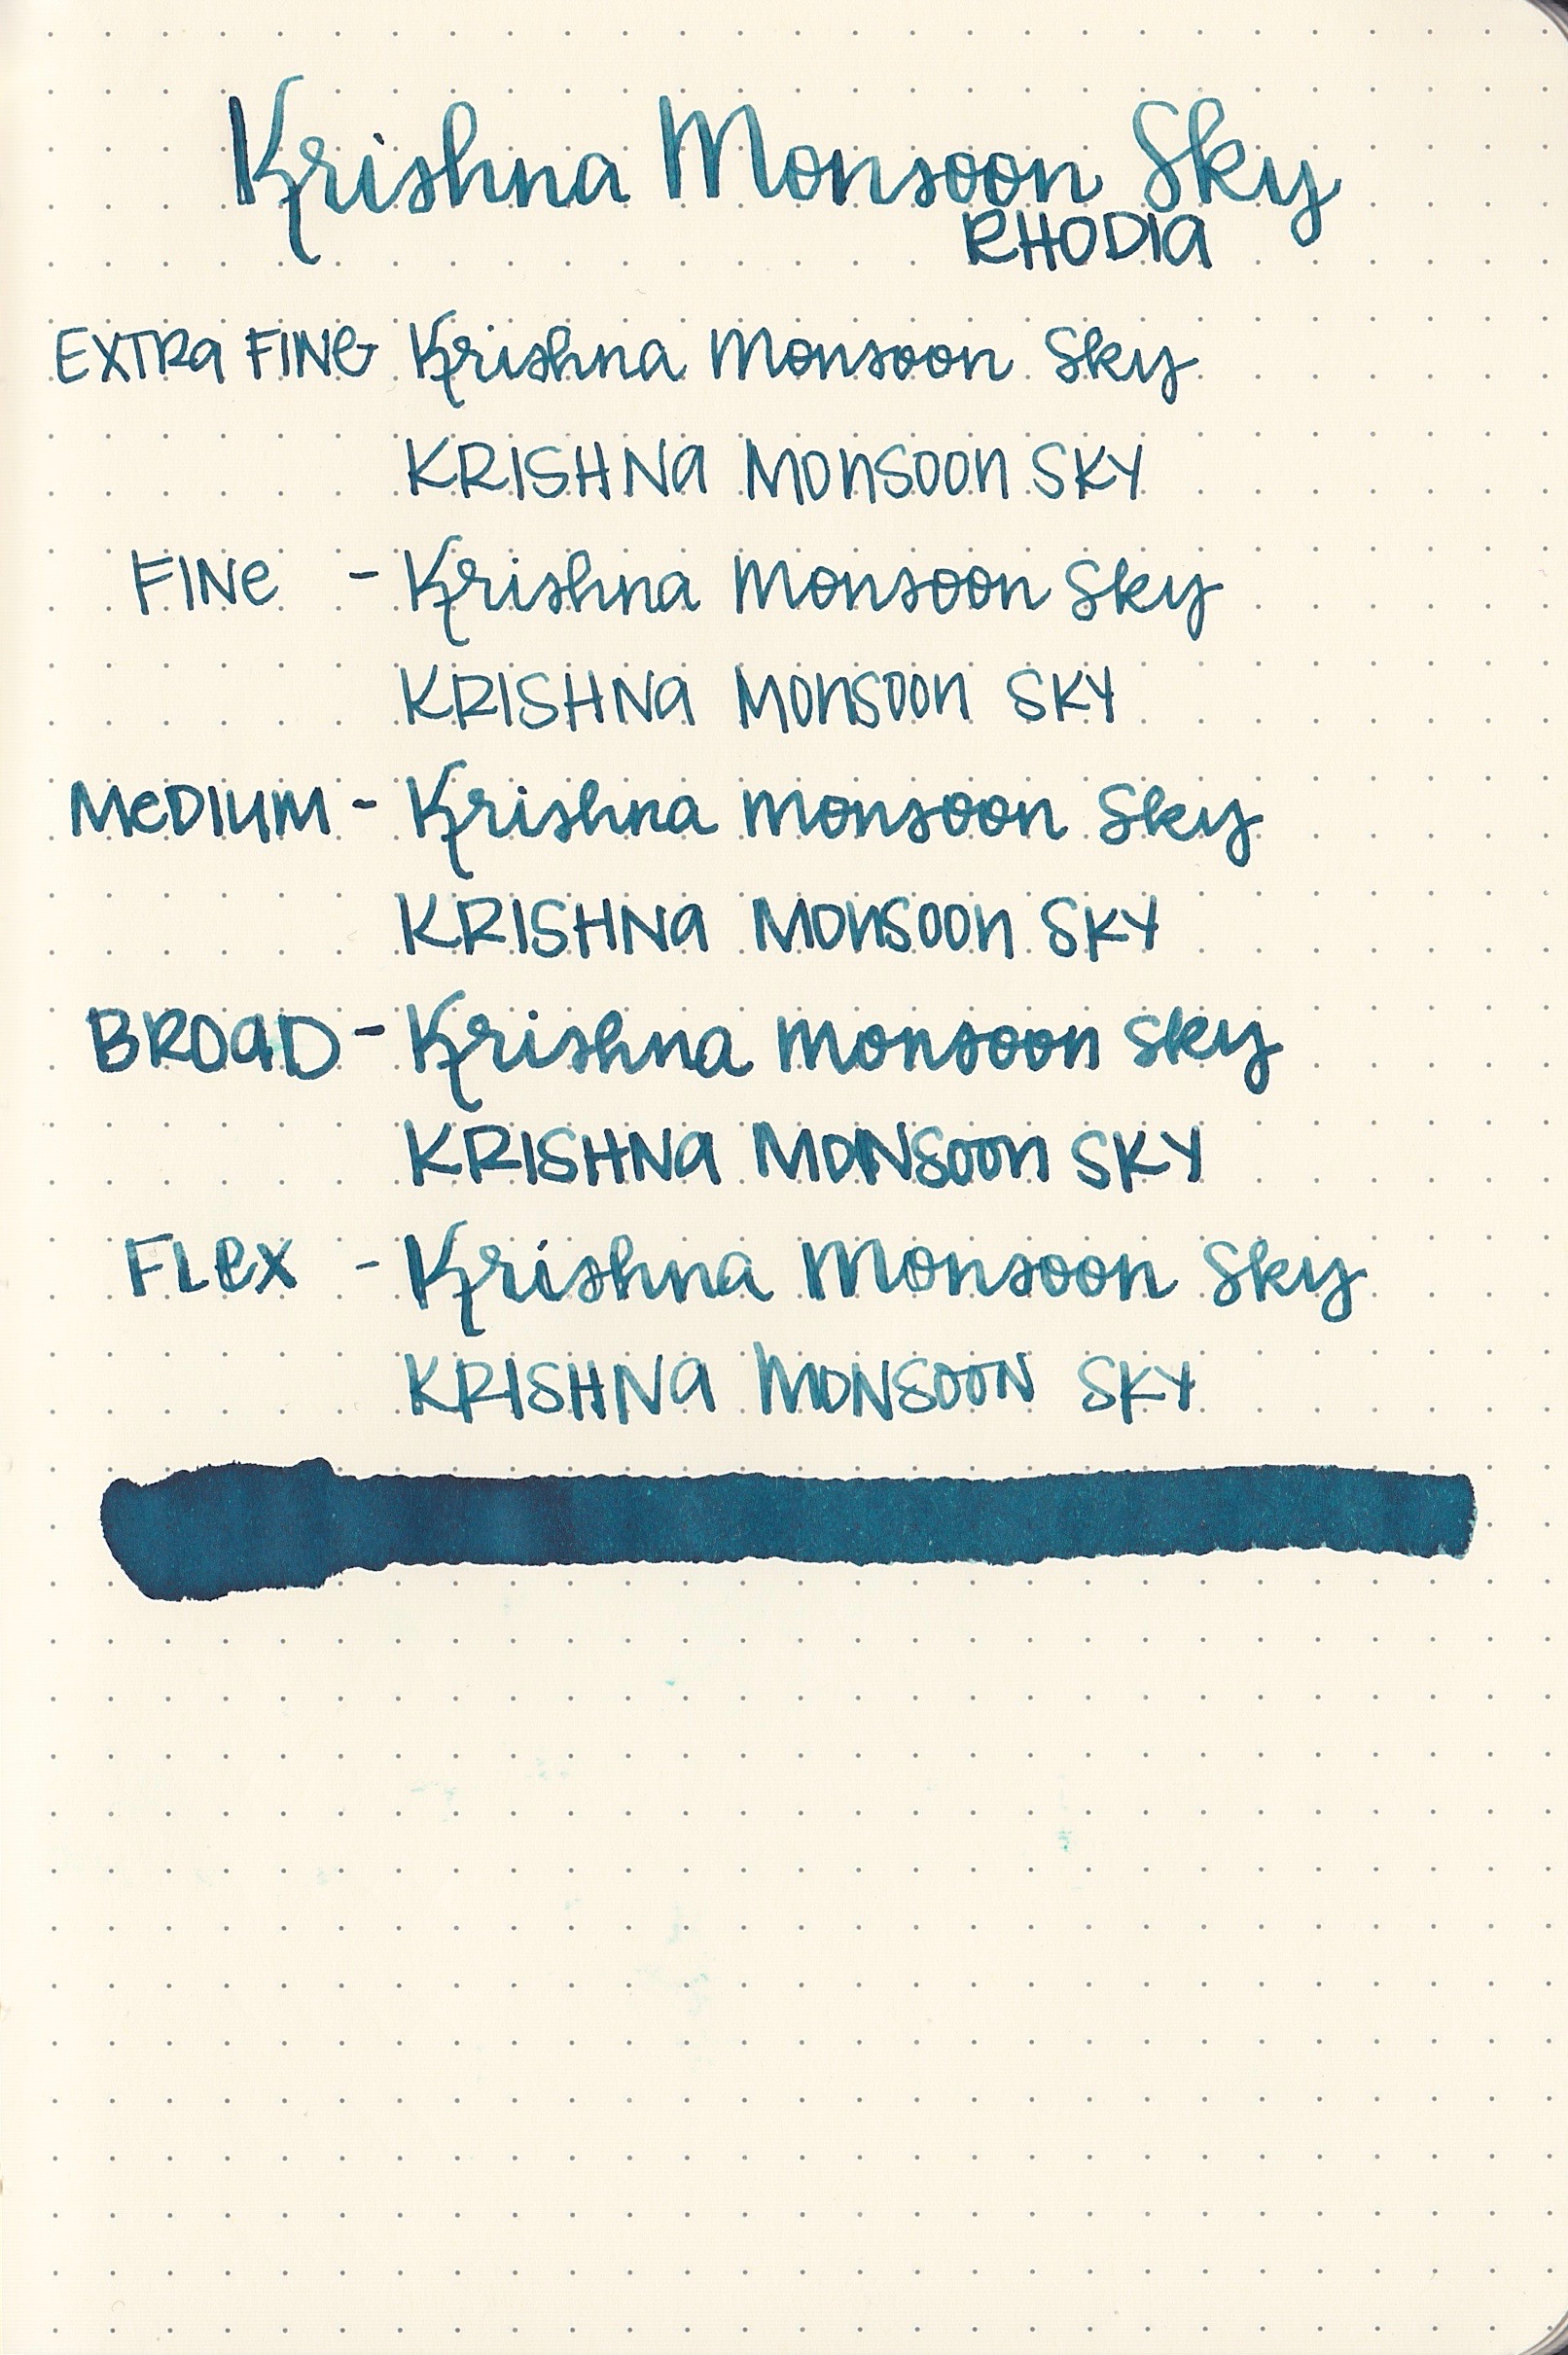 Krishna Monsoon Sky
RHODIA
EXTRA FINE Krishna Monsoon Sky
KRISHNA MONSOON SKY
FINE - Krishna Monsoon Sky
KRISHNA MONSOON SKY
MEDIUM - Krishna Monsoon Sky
KRISHNA MONSOON SKY
BROAD - Krishna Monsoon Sky
KRISHNA MONSOON SKY
FLEX - Krishna Monsoon Sky
KRISHNA MONSOON SKY